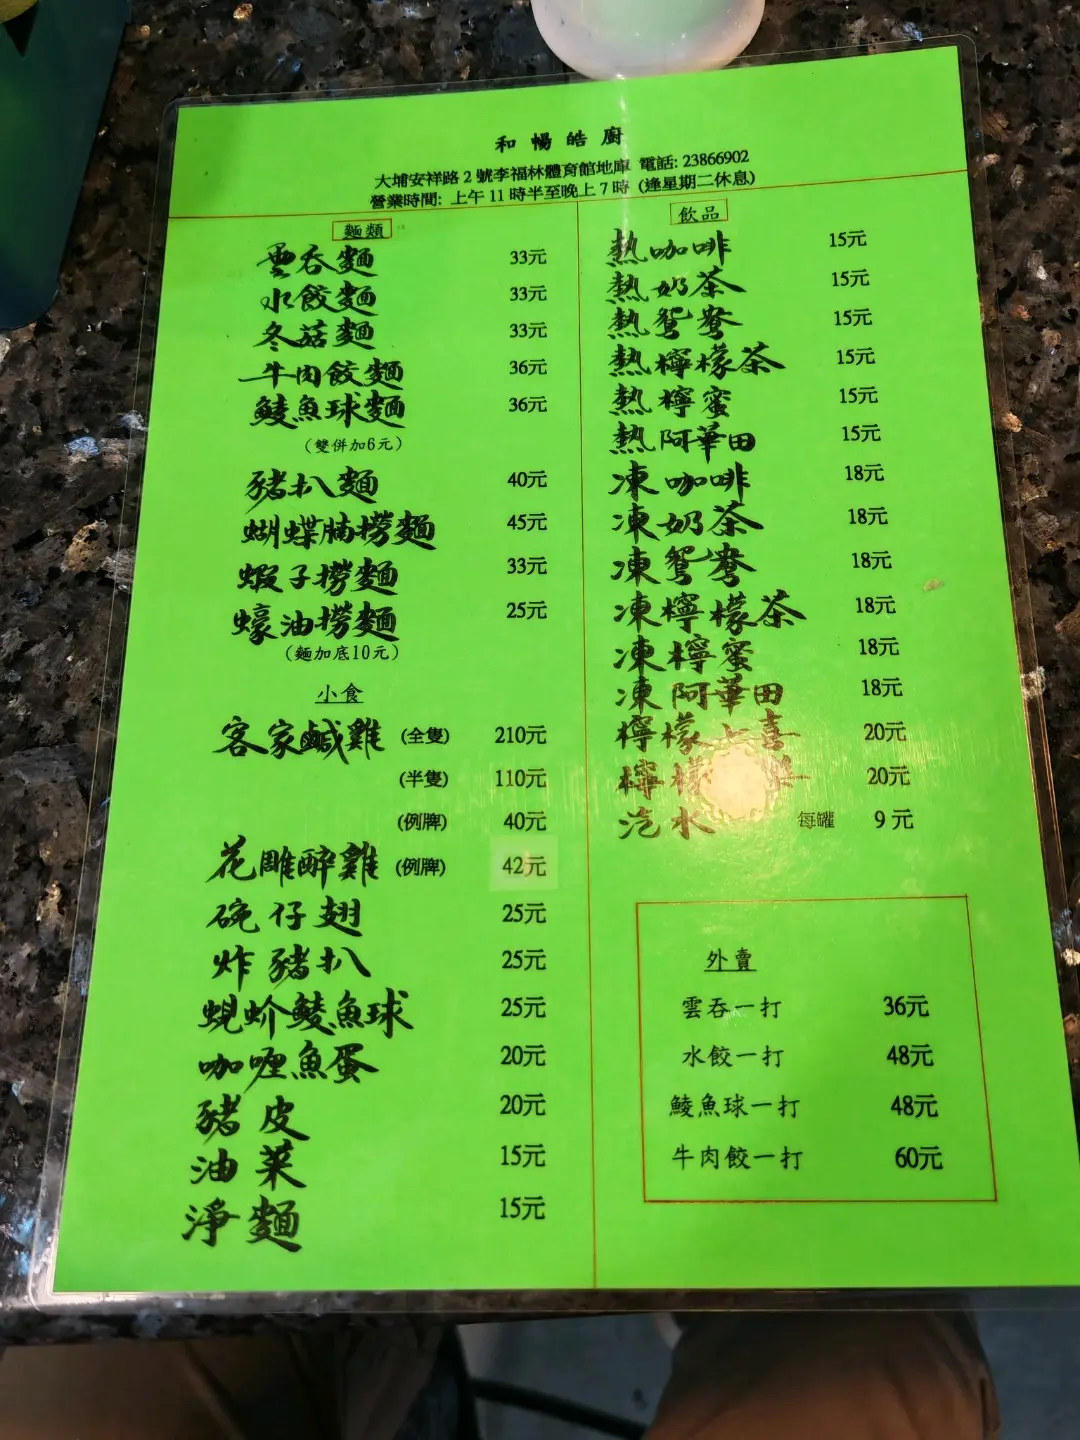 和暢皓廚
大埔安祥路 2 號李福林體育館地庫 電話: 23866902
營業時間: 上午 11 時半至晚上 7 時 (逢星期二休息)
麵類
雲吞麵 33元
水餃麵 33元
冬菇麵 33元
牛肉餃麵 36元
鯪魚球麵 36元
(雙併加6元)
豬扒麵 40元
蝴蝶腩撈麵 45元
蝦子撈麵 33元
蠔油撈麵 25元
(麵加底10元)
小食
客家鹹雞 (全隻) 210元
(半隻) 110元
(例牌) 40元
花雕醉雞 (例牌) 42元
碗仔翅 25元
炸豬扒 25元
蜆蚧鯪魚球 25元
咖喱魚蛋 20元
豬皮 20元
油菜 15元
淨麵 15元
飲品
熱咖啡 15元
熱奶茶 15元
熱鴛鴦 15元
熱檸檬茶 15元
熱檸蜜 15元
熱阿華田 15元
凍咖啡 18元
凍奶茶 18元
凍鴛鴦 18元
凍檸檬茶 18元
凍檸蜜 18元
凍阿華田 18元
檸檬七喜 20元
檸檬 20元
汽水 每罐 9 元
外賣
雲吞一打 36元
水餃一打 48元
鯪魚球一打 48元
牛肉餃一打 60元